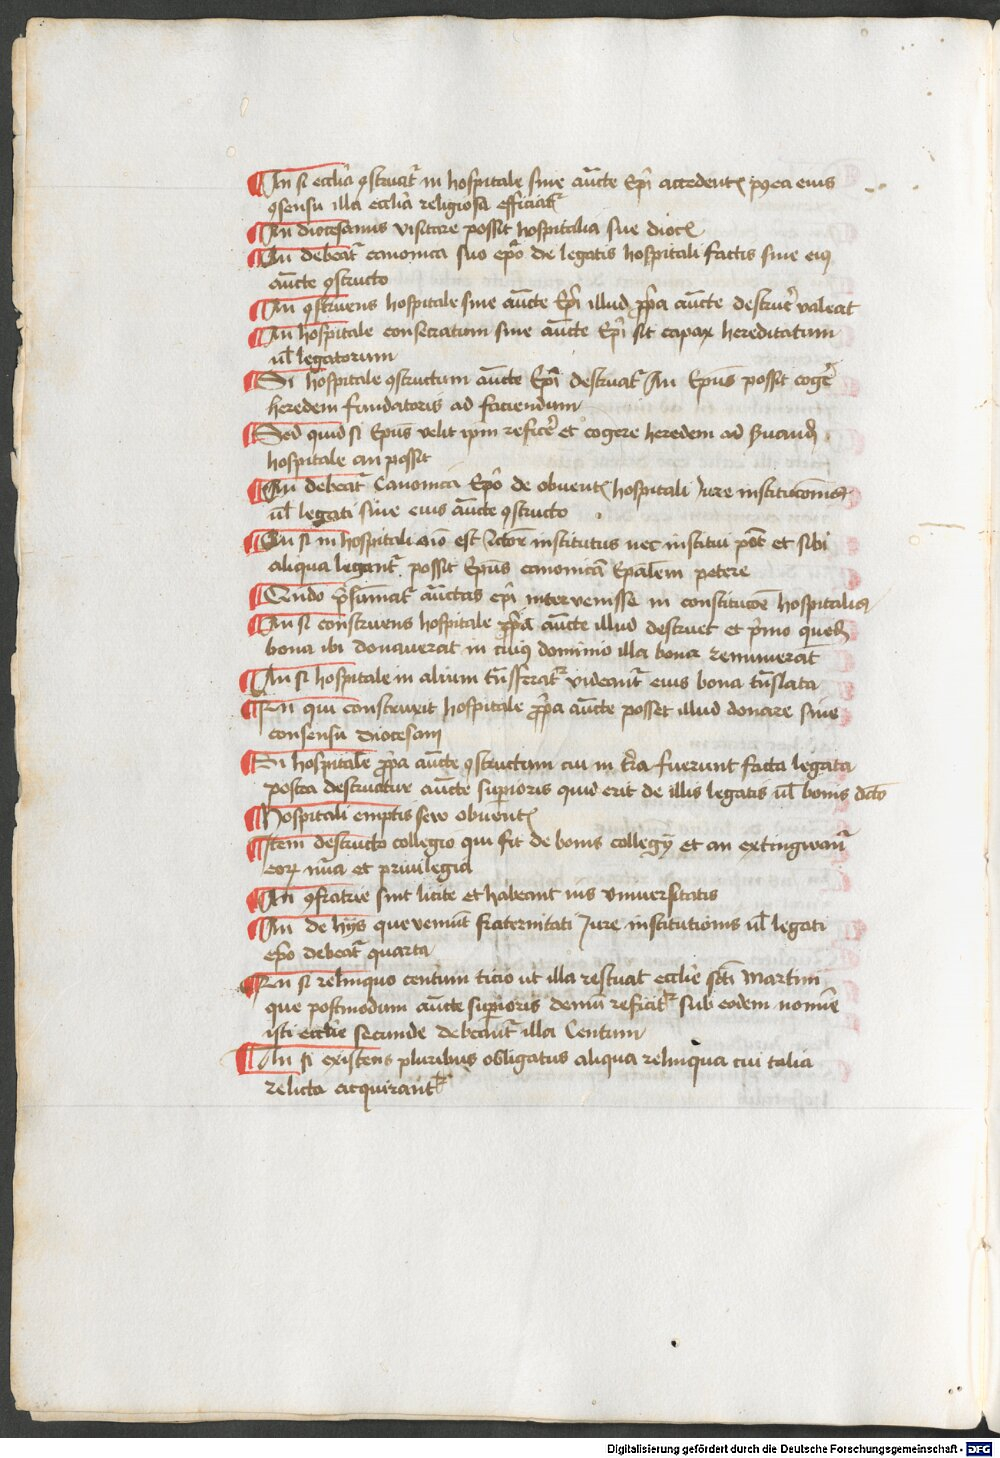 An si ecclīa ꝯstruat᷑ in hospitale sine auc̄te Ep̄i accedente postea eius
ꝯsensu illa ecclīa religiosa efficiat᷑
An diocesanus visitare possit hospitalia sue dioc̄
An debeat᷑ canonica suo ep̄o de legatis hospitali factis sine eiꝰ
auc̄te ꝯstructo
An ꝯstruens hospitale sine auc̄te Ep̄i illud ꝓpria auc̄te destrue᷑ valeat
An hospitale consecratum sine auc̄te Ep̄i sit capax hereditatum
ul̄ legatorum
Si hospitale ꝯstructum auc̄te Ep̄i destruat᷑ An Ep̄us possit coge᷑
heredem fundatoris ad faciendum
Sed quid si Ep̄us velit ip̄m refice᷑ et cogere heredem ad
hospitale an possit
An debeat᷑ Canonica Ep̄o de obuent hospitali Jure instituc̄onis
ul̄ legati sine eius auc̄te ꝯstructo
An si in hospitali nō est Rc̄or institutus nec institui pōt et sibi
aliqua legant᷑ possit Ep̄us canonicā Ep̄alem petere
Qn̄do p̄sumat᷑ auc̄tas ep̄i interuenisse in constituc̄oe hospitaliū
An si construens hospitale ꝓpria auc̄te illud destruet et p̄mo
bona ibi donauerat in cuiꝰ dominio illa bona remaneat
An si hospitale in alium tn̄sferat᷑ videant᷑ eius bona tn̄slata
An qui construxit hospitale ꝓpria auc̄te posset illud donare sine
consensu diocesani
Si hospitale ꝓpria auc̄te ꝯstructum cui in t᷑ra fuerunt facta legata
postea destruatur auc̄te suꝑioris quid erit de illis legatis ul̄ bonis dc̄o
Hospitali emptis seu obuent
Item destructo collegio qui fit de bonis collegij et an extingwant᷑
eoꝝ iura et priuilegia
An ꝯfratrie sint licite et habeant ius vniuersitatis
An de hijs que veniūt fraternitati Jure institutionis ul̄ legati
ep̄o debeat᷑ quarta
An si relinquo centum ticio ut illa restuat ecclie sc̄ti Martini
que postmodum auc̄te suꝑioris demū reficit᷑ sub eodem nomīe
isti ecclīe secunde debeant᷑ illa Centum
An si existens pluribus obligatus aliqua relinqua cui talia
relicta acquirant᷑
Digitalisierung gefördert durch die Deutsche Forschungsgemeinschaft - DFG